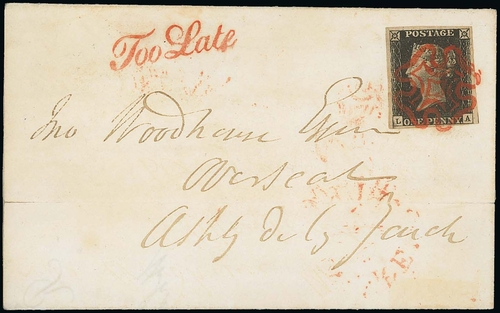 Too Late
POSTAGE
L ONE PENNY A
Jno Woodhouse Esqre
Overseal
Ashby de la Zouch